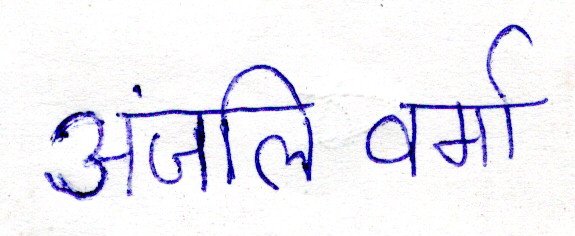 अंजलि वर्मा